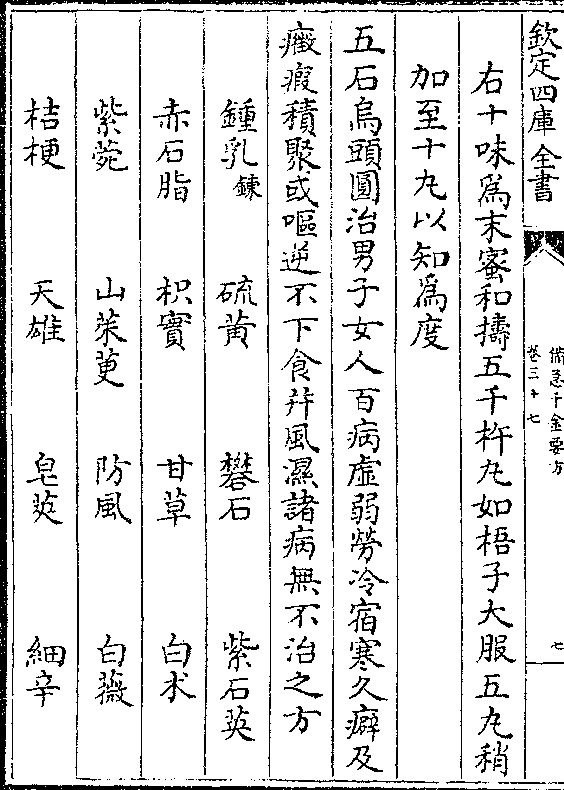 欽定四庫全書
備急千金要方
卷三十七
七
右十味為末蜜和擣五千杵丸如梧子大服五丸稍
加至十丸以知為度
五石烏頭圓治男子女人百病虛弱勞冷宿寒久癖及
癥瘕積聚或嘔逆不下食幷風濕諸病無不治之方
鍾乳鍊 硫黃 礬石 紫石英
赤石脂 枳實 甘草 白朮
紫菀 山茱萸 防風 白薇
桔梗 天雄 皂莢 細辛